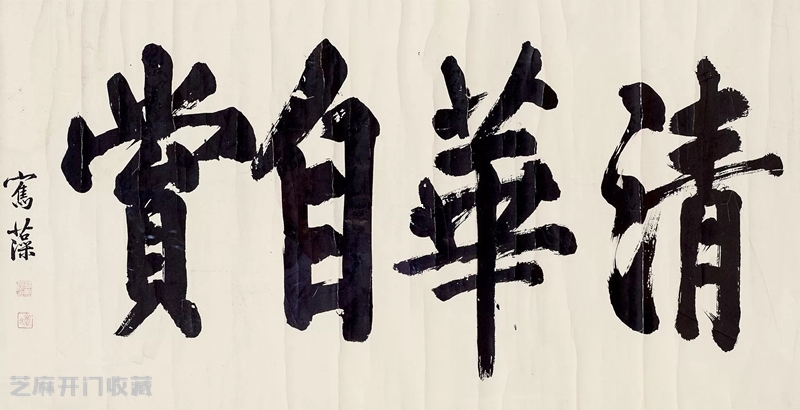 清華自賞
寯藻
芝麻开门收藏